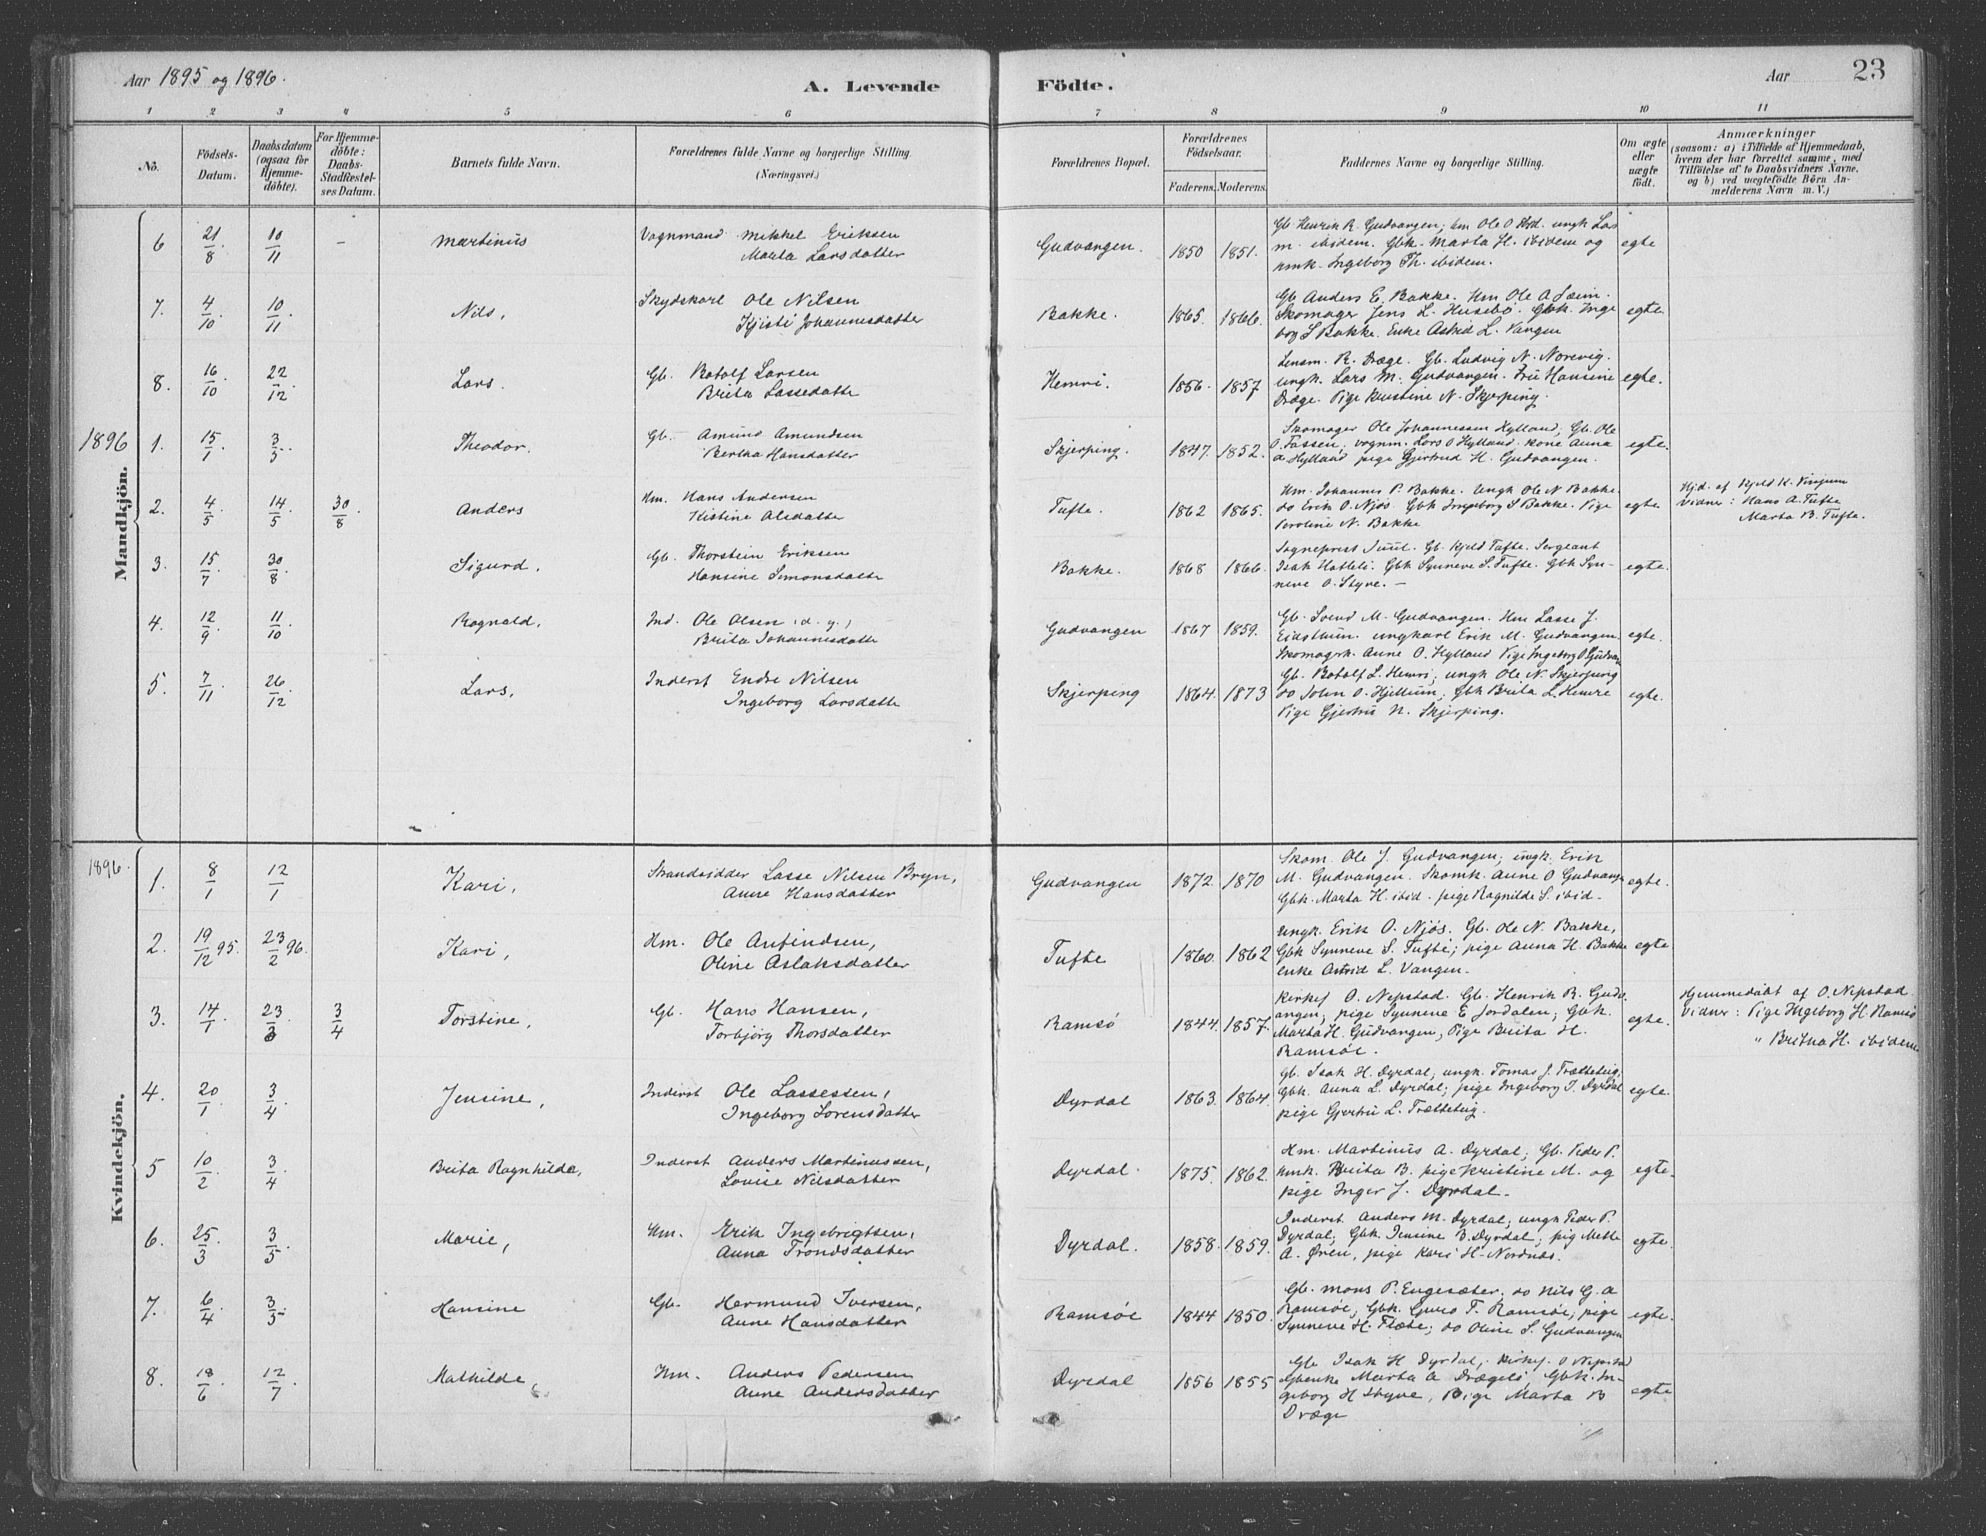 Aar 1895 og 1896.
A. Levende Födte.
Aar
23
1 2 3 4 5 6 7 8 9 10 11
No.
Födsels-
Datum.
Daabsdatum
(ogsaa for
Hjemme-
döbte).
For Hjemme-
döbte:
Daabs-
Stadfæstel-
ses Datum.
Barnets fulde Navn.
Forældrenes fulde Navne og borgerlige Stilling.
(Næringsvei.)
Forældrenes Bopæl.
Forældrenes
Födselsaar.
Faderens. Moderens.
Faddernes Navne og borgerlige Stilling.
Om ægte
eller
uægte
födt.
Anmærkninger
(saasom: a) i Tilfælde af Hjemmedaab,
hvem der har forrettet samme, med
Tilföielse af to Daabsvidners Navne,
og b) ved uægtefödte Börn An-
melderens Navn m. V.)
Mandkjön.
6 21/8. 10/11 – Martinus
Vognmand Mikkel Eriksen
Marta Larsdatter
Gudvangen. 1850 1851.
Gb. Henrik R. Gudvangen, hm Ole O ibid. ungk Lars
M. ibidem. Gbk. Marta H. ibidem og
hmk. Ingeborg Th. ibidem.
egte
7. 4/10. 10/11 Nils,
Skydskarl Ole Nilsen
Kjisti Johannesdatter
Bakke. 1865. 1866.
Gb Anders E. Bakke. Hm Ole A
Skomager Jens L. Husebö. Gbk. Inge
borg S Bakke. Enke Astrid L. Vangen
egte.
8. 16/10. 22/12 Lars.
Gb. Botolf Larsen
Brita Lassedatter
Hemri. 1856. 1857
Lensm. R. Dræge. Gb. Ludvig N. Norevig.
ungk. Lars M. Gudvangen. Fru Hansine
Dræge. Pige Kristine N. Skjerping.
egte.
1896
1. 15/1 3/3. Theodor.
Gb. Amund Amundsen
Bertha Hansdatter
Skjerping. 1847. 1852.
Skomager Ole Johannessen Hylland, Gb. Ole
O. Tassen, vognm. Lars O Hylland. kone Anna
A Hylland pige Gjertrud H. Gudvangen.
egte.
2. 4/5 14/5 30/8 Anders
Hm. Hans Andersen
Kistine Olsdatter
Tufte. 1862 1865.
Hm. Johannes P. Bakke. Ungk Ole N Bakke.
do Erik O. Njös. Gbk Ingeborg S Bakke. Pige
Peroline N. Bakke
egte
Hjd. af Kjeld H. Vinjum
Vidner: Hans A. Tufte
Marta B. Tufte.
3. 15/7. 30/8. Sigurd.
Gb. Thorstein Eriksen
Hansine Simonsdatter
Bakke. 1868 1866.
Sogneprest Juul. Gb. Kjeld Tufte. Sergeant
Isak Hatleli. Gbk Synneve S. Tufte. Gbk Syn-
neve O. Styve. –
egte.
4. 12/9 11/10 Ragnald,
Ind. Ole Olsen (d. y.)
Brita Johannesdatter
Gudvangen 1867 1859.
Gb. Svend M. Gudvangen. Hm Lasse J.
Eidsthun. ungkarl Erik M. Gudvangen.
Skomagrk. Anne O. Hylland Pige Ingeborg O. Gudvan
egte.
5. 7/11 26/12 Lars,
Inderst Endre Nilsen
Ingeborg Larsdatter
Skjerping 1864. 1873
Gb. Botolf L. Hemri; ungk Ole N. Skjerping
do John O. Hjellum; Gbk Brita L. Hemre
Pige Gjertru N. Skjerping.
egte.
1896.
Kvindekjön.
1. 8/1 12/1 Kari,
Strandsidder Lasse Nilsen Bryn,
Anne Hansdatter
Gudvangen 1872. 1870
Skom. Ole J. Gudvangen; ungk. Erik
M. Gudvangen. Skomk. Anne O Gudvange
Gbk. Marta H. ibid. pige Ragnilde S. ibid.
egte.
2. 19/12 95. 23/2 96. Kari,
Hm. Ole Anfindsen,
Oline Aslaksdatter
Tufte 1860. 1862
Ungk. Erik O. Njös. Gb. Ole N. Bakke,
Gbk Synneve S. Tufte; pige Anna H. Bakke
enke Astrid L. Vangen.
egte
3. 14/1 23/3 3/4 Torstine,
Gb. Hans Hansen,
Torbjörg Thorsdatter
Ramsö 1844. 1857.
Kirkes. O. Nepstad. Gb. Henrik R. Gudv.
angen; pige Synneve E Jordalen; Gbk.
Marta H. Gudvangen, Pige Brita H.
Ramsöe.
egte.
Hjemmedöbt af O. Nepstad
Vidner: Pige Ingeborg H. Ramsö
" Britha H. ibidem
4. 20/1 3/4 Jensine,
Inderst Ole Lassessen,
Ingeborg Sorensdatter
Dyrdal 1863. 1864.
Gb. Isak H. Dyrdal, ungk. Tomas J. Trætteteig;
Gbk. Anna L. Dyrdal; pige Ingeborg T. Dyrdal
pige Gjertru L. Trætteteig.
egte.
5 10/2 3/4 Brita Ragnhilda,
Inderst Anders Martinussen,
Lovise Nilsdatter
Dyrdal. 1875. 1862.
Hm. Martinus A. Dyrdal; Gb. Peder P.
hmk. Brita B. pige Kristine M. og
pige Inger J. Dyrdal.
egte.
6. 25/3 3/5. Marie,
Hm. Erik Ingebrigtsen,
Anna Trondsdatter
Dyrdal. 1858. 1859.
Inderst. Anders M. Dyrdal; ungk Peder P.
Dyrdal; Gbk. Jensine B. Dyrdal; pig Mette
A. Øren, pige Kari H. Nordnæs.
egte.
7. 6/4 3/5. Hansine
Gb. Hermund Iversen,
Anne Hansdatter
Ramsöe 1844 1850.
Gb. Mons P. Engesæter. do Nils G. A
Ramsöe; Gbk. Guro T. Ramsöe; pige
Synneve H. Flæte; do Oline S. Gudvangen
egte.
8. 18/6 12/7 Mathilde
Hm. Anders Pedersen
Anne Andersdatter
Dyrdal 1856 1855
Gb Isak H Dyrdal, Kirkes. O Nepstad
Gbenke Marta A Drægeli, Gbk. In-
geborg H Styve, Pige Marta B
Dræge
egte